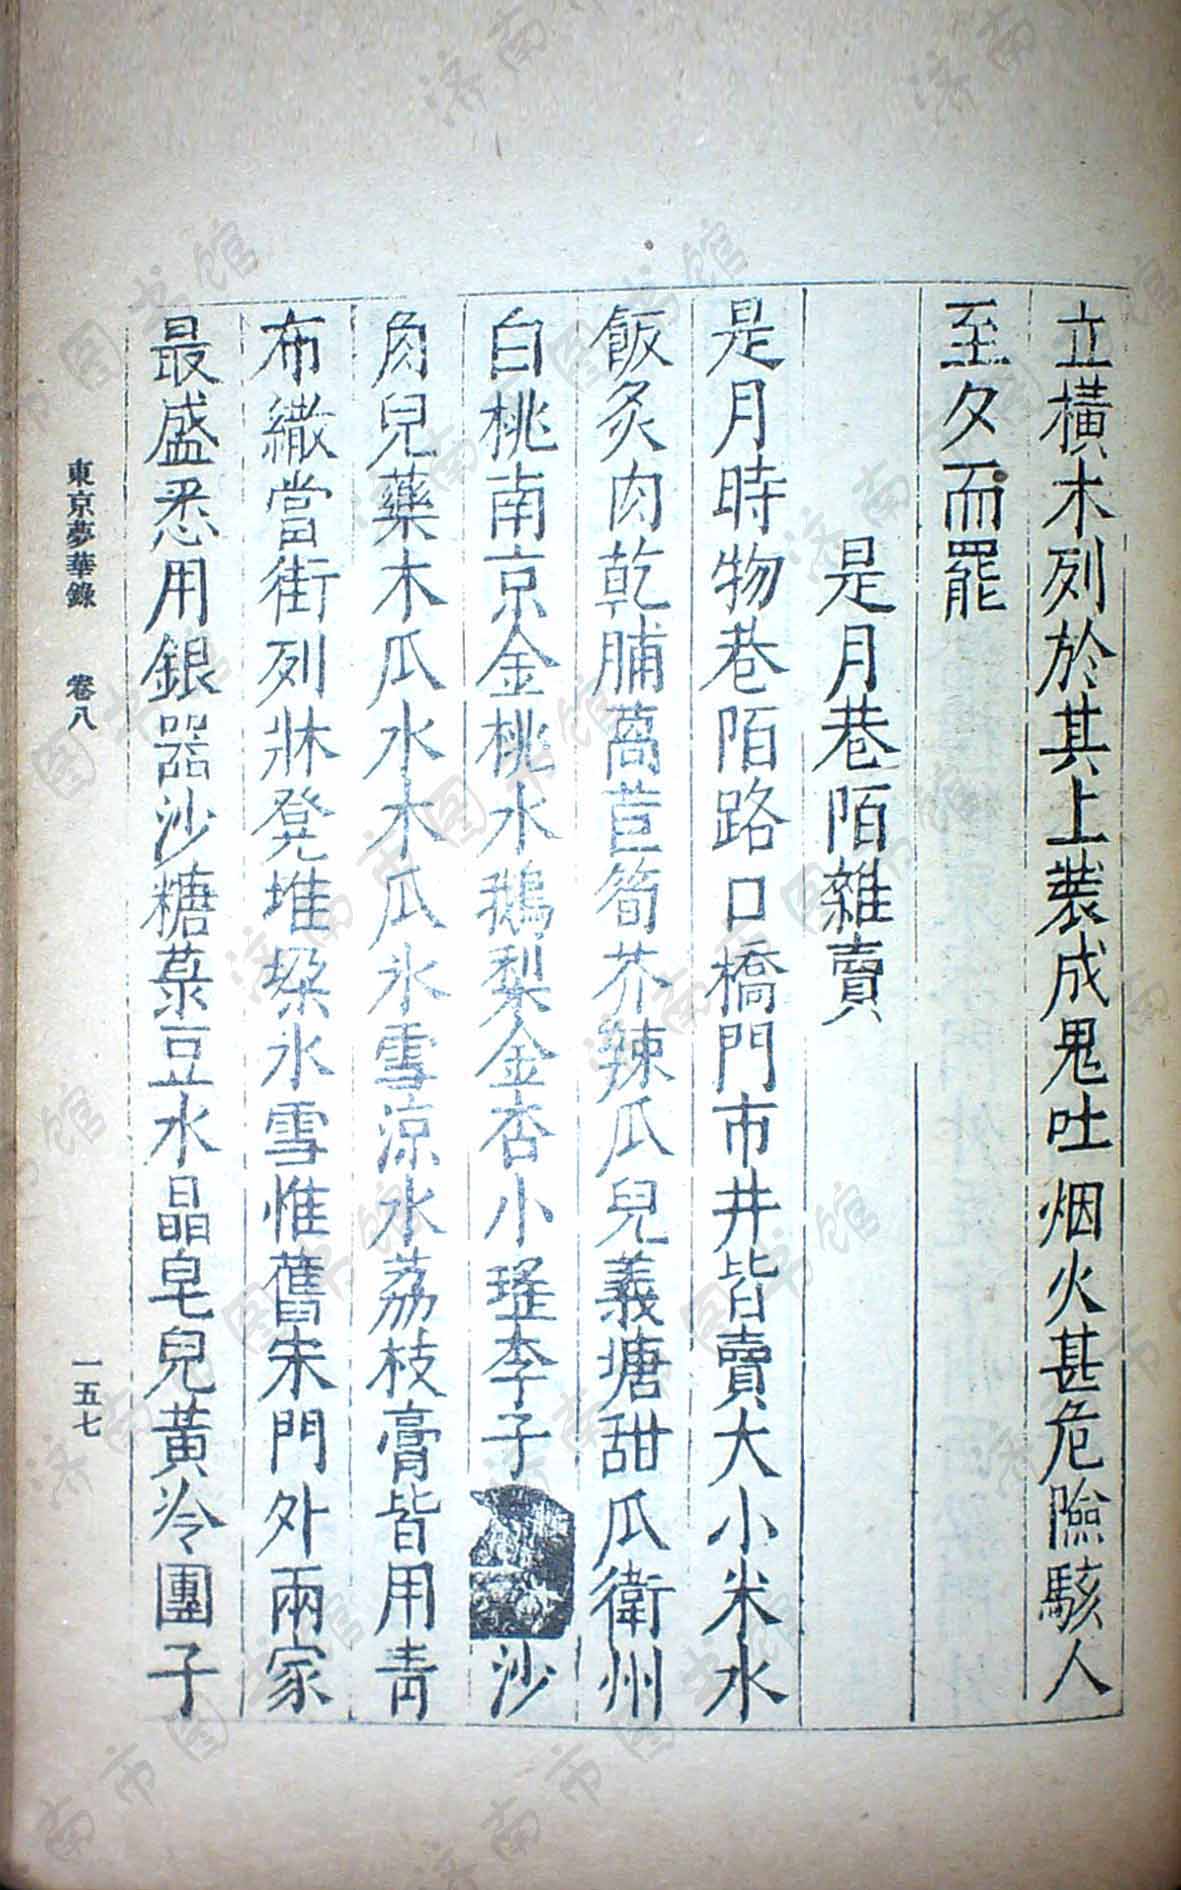 立橫木列於其上裝成鬼吐烟火甚危險駭人
至夕而罷
是月巷陌雜賣
是月時物巷陌路口橋門市井皆賣大小米水
飯炙肉乾脯萵苣筍芥辣瓜兒義塘甜瓜衛州
白桃南京金桃水鵝梨金杏小瑤李子沙
角兒藥木瓜水木瓜氷雪涼水荔枝膏皆用青
布繖當街列牀凳堆垜氷雪惟舊宋門外兩家
最盛悉用銀器沙糖菉豆水晶皂兒黃冷團子
東京夢華錄 卷八 一五七
济南市图书馆